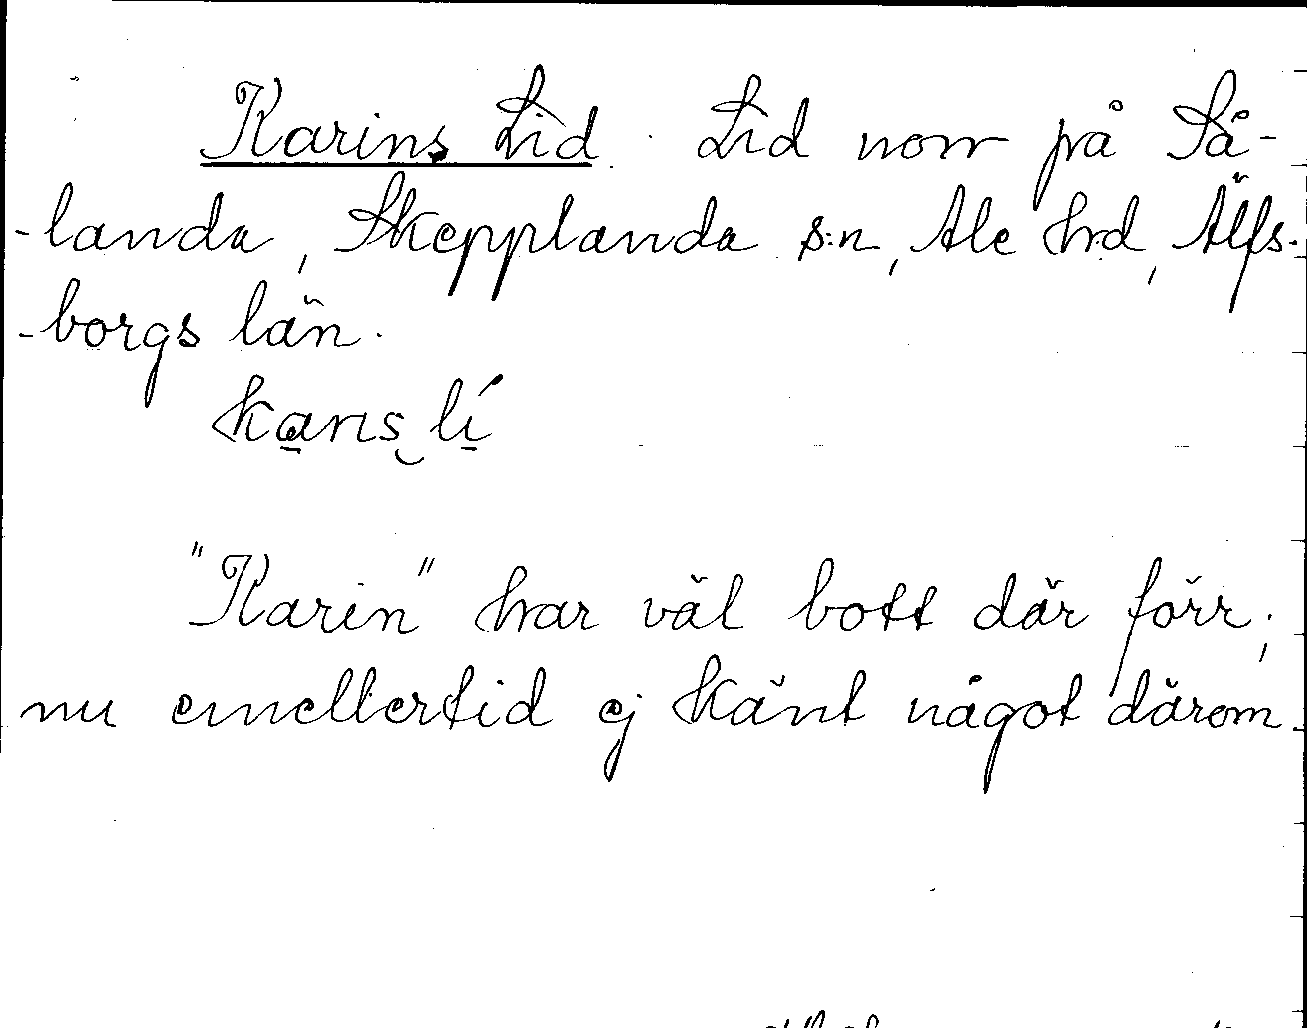 Karins Lid. Lid norr på Så-
-landa, Skepplanda s:n, Ale hrd, Älfs-
-borgs län.
kans lí
"Karin" har väl bott där förr;
nu emellertid ej känt något därom.